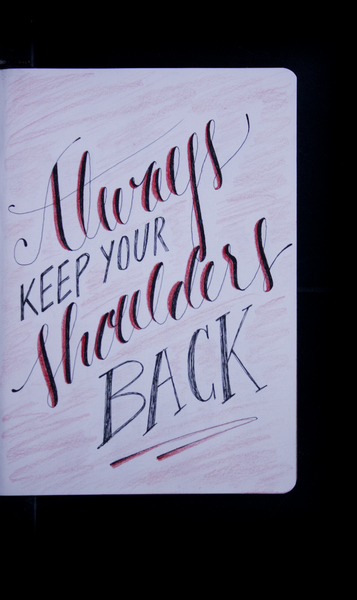 Always
KEEP YOUR
Shoulders
BACK